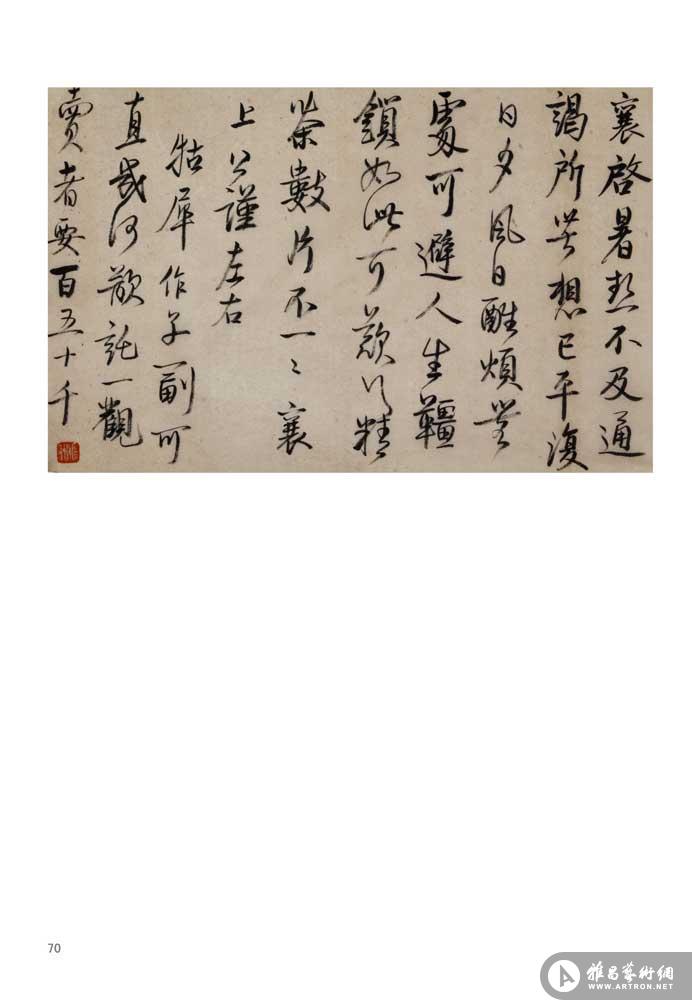 襄啓暑熱不及通
謁所苦想已平復
日夕風日酷煩無
處可避人生韁
鎖如此可歎〻精
茶數片不一〻襄
上公謹左右
牯犀作子一副可
直幾何欲託一觀
賣者要百五十千
70
雅昌藝術網
WWW.ARTRON.NET